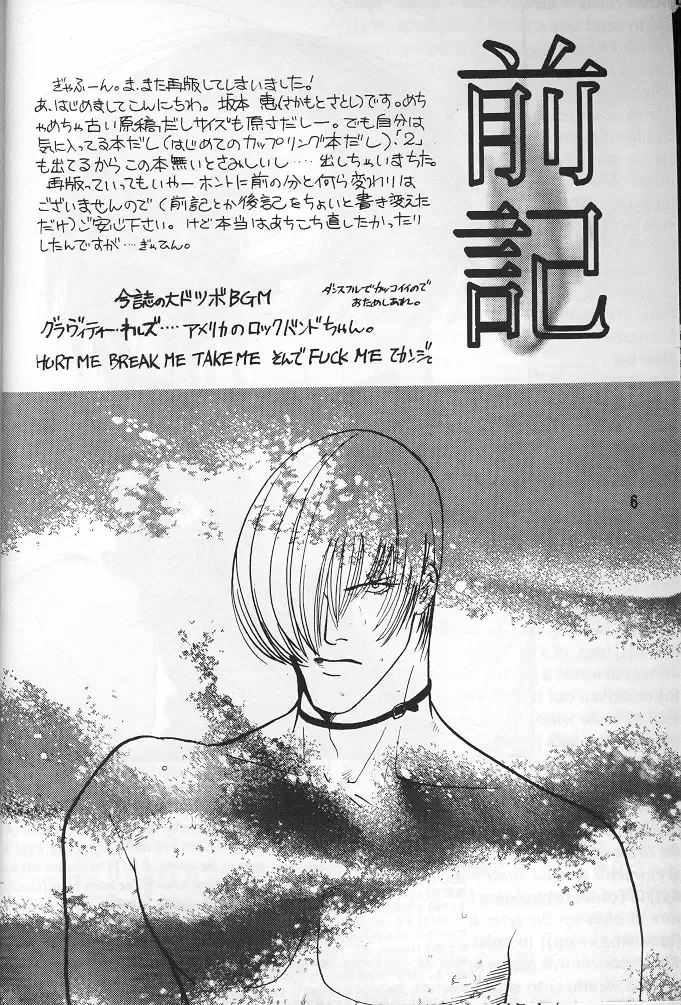 前記
ぎゃふーん。ま、また再版してしまいました!
あ、はじめましてこんにちわ。坂本 恵(さかもとさとし)です。めち
ゃめちゃ古い原稿だしサイズも原寸だしー。でも自分は
気に入ってる本だし(はじめてのカップリング本だし)、「2」
も出てるからこの本無いとさみしいし‥‥出しちゃいまちた。
再版っていってもいやーホントに前の分と何ら変わりは
ございませんので(前記とか後記をちょいと書き変えた
だけ)ご安心下さい。けど本当はあちこち直したかったり
したんですが‥‥ぎぶてん。
今誌の大ドツボBGM
ダンスフルでカッコイイので
おためしあれ。
グラヴィティー・キルズ‥‥アメリカのロックバンドちゃん。
HURT ME BREAK ME TAKE ME そんで FUCK ME てカンジで
6